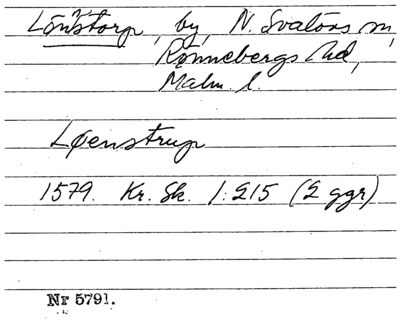 Lönstorp, by, N. Svalövs sn,
Rönnebergs hd,
Malm. l.
Løenstrup
1579. Kr. Sk. 1:215 (2 ggr)
Nr 5791.